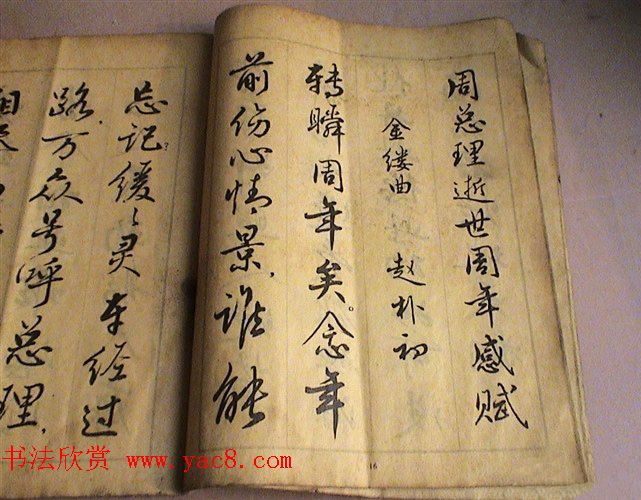 周总理逝世周年感赋
金缕曲 赵朴初
轉瞬周年矣。念年
前伤心情景，谁能
忘记？缓々灵车经过
路，万众号呼总理，
16
书法欣赏 www.yac8.com